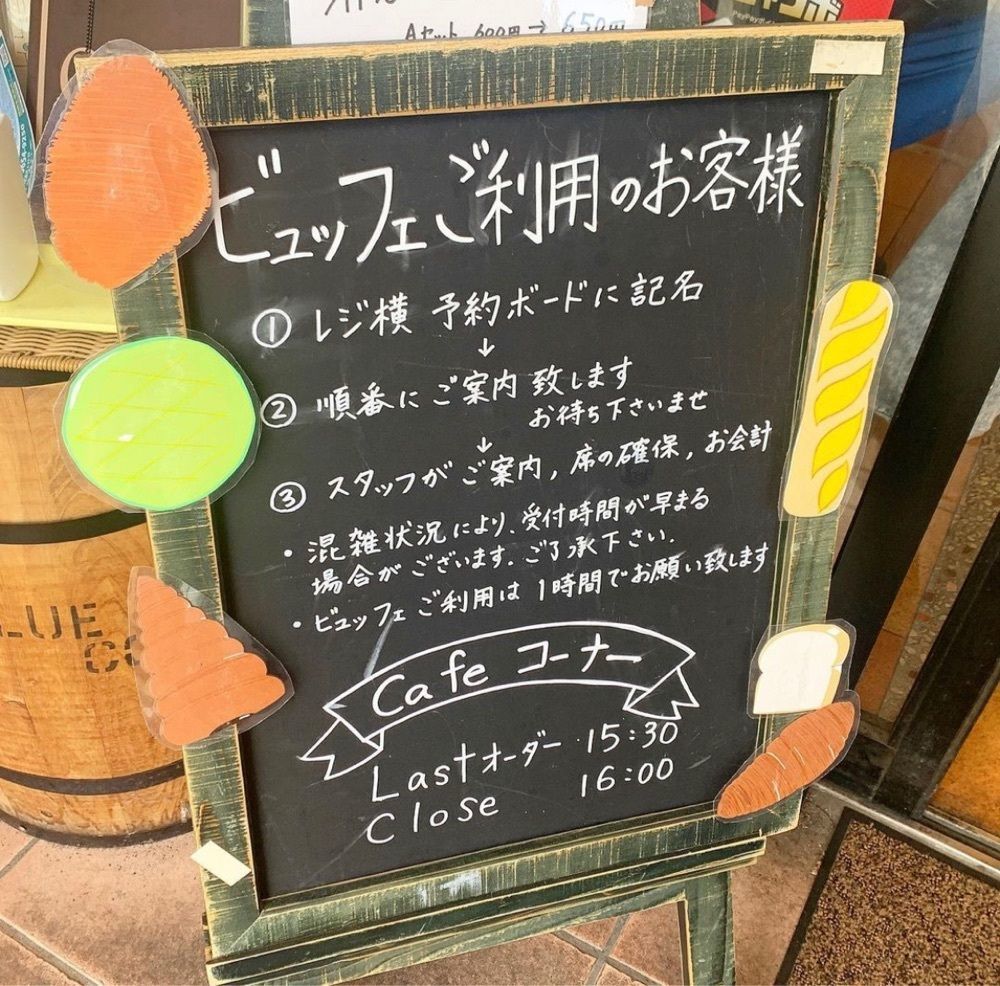 Aセット 600円→ 650円
ビュッフェご利用のお客様
① レジ横 予約ボードに記名
↓
② 順番にご案内致します
お待ち下さいませ
↓
③ スタッフがご案内, 席の確保, お会計
・混雑状況により、受付時間が早まる
場合がございます. ご了承下さい.
・ビュッフェご利用は 1時間でお願い致します
Cafe コーナー
Lastオーダー 15:30
Close 16:00